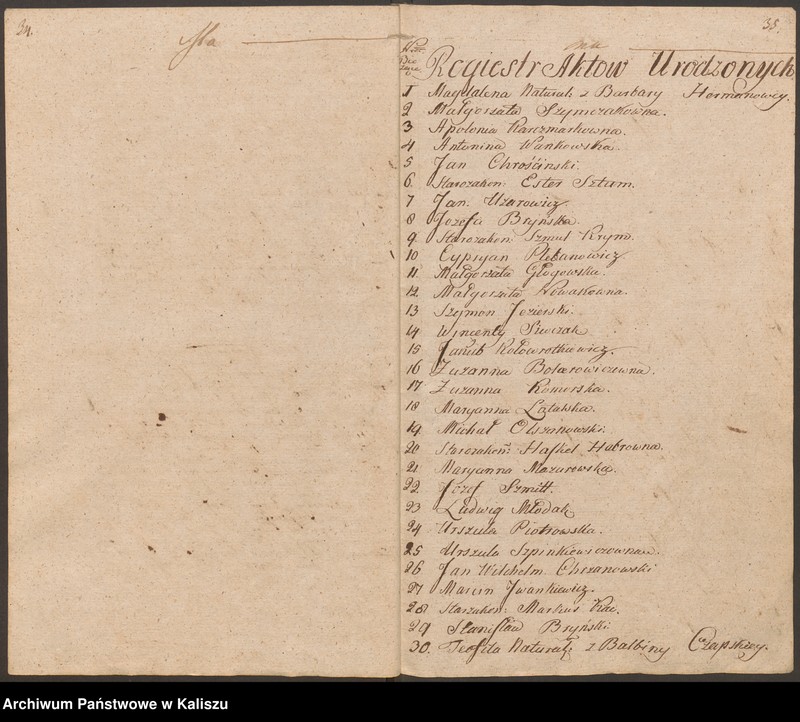 34.
35.
Regiestr Aktow Urodzonych
1 Magdalena Natural: z Barbary Hermanowey.
2 Małgorzata Szymczakowna.
3 Apolonia Karczmarkowna.
4 Antonina Wankowska.
5 Jan Chrościnski.
6 Starozakon: Ester Sztum.
7 Jan Uzarowicz.
8 Jozefa Brynska.
9 Starozakon: Szmul Krym.
10 Cypryan Plebanowicz
11 Małgorzata Głogowska.
12 Małgorzata Nowakowna.
13 Szymon Jezierski.
14 Wincenty Siwczak
15 Jakub Kołowrotkiewicz.
16 Zuzanna Bednarowiczowna.
17 Zuzanna Komorska.
18 Maryanna Latańska.
19 Michał Olszanowski.
20 Starozakon: Haskel Habrowna.
21 Maryanna Mazurowska.
22 Jozef Szmitt.
23 Ludwig Młodak
24 Urszula Piotrowska.
25 Urszula Szpinkiewiczowna.
26 Jan Wilchelm Chrzanowski
27 Marcin Jwankiewicz.
28 Starozakon: Markus Kac.
29 Stanisław Bryński
30. Teofila Natural: z Balbiny Czapskiey.
Archiwum Państwowe w Kaliszu